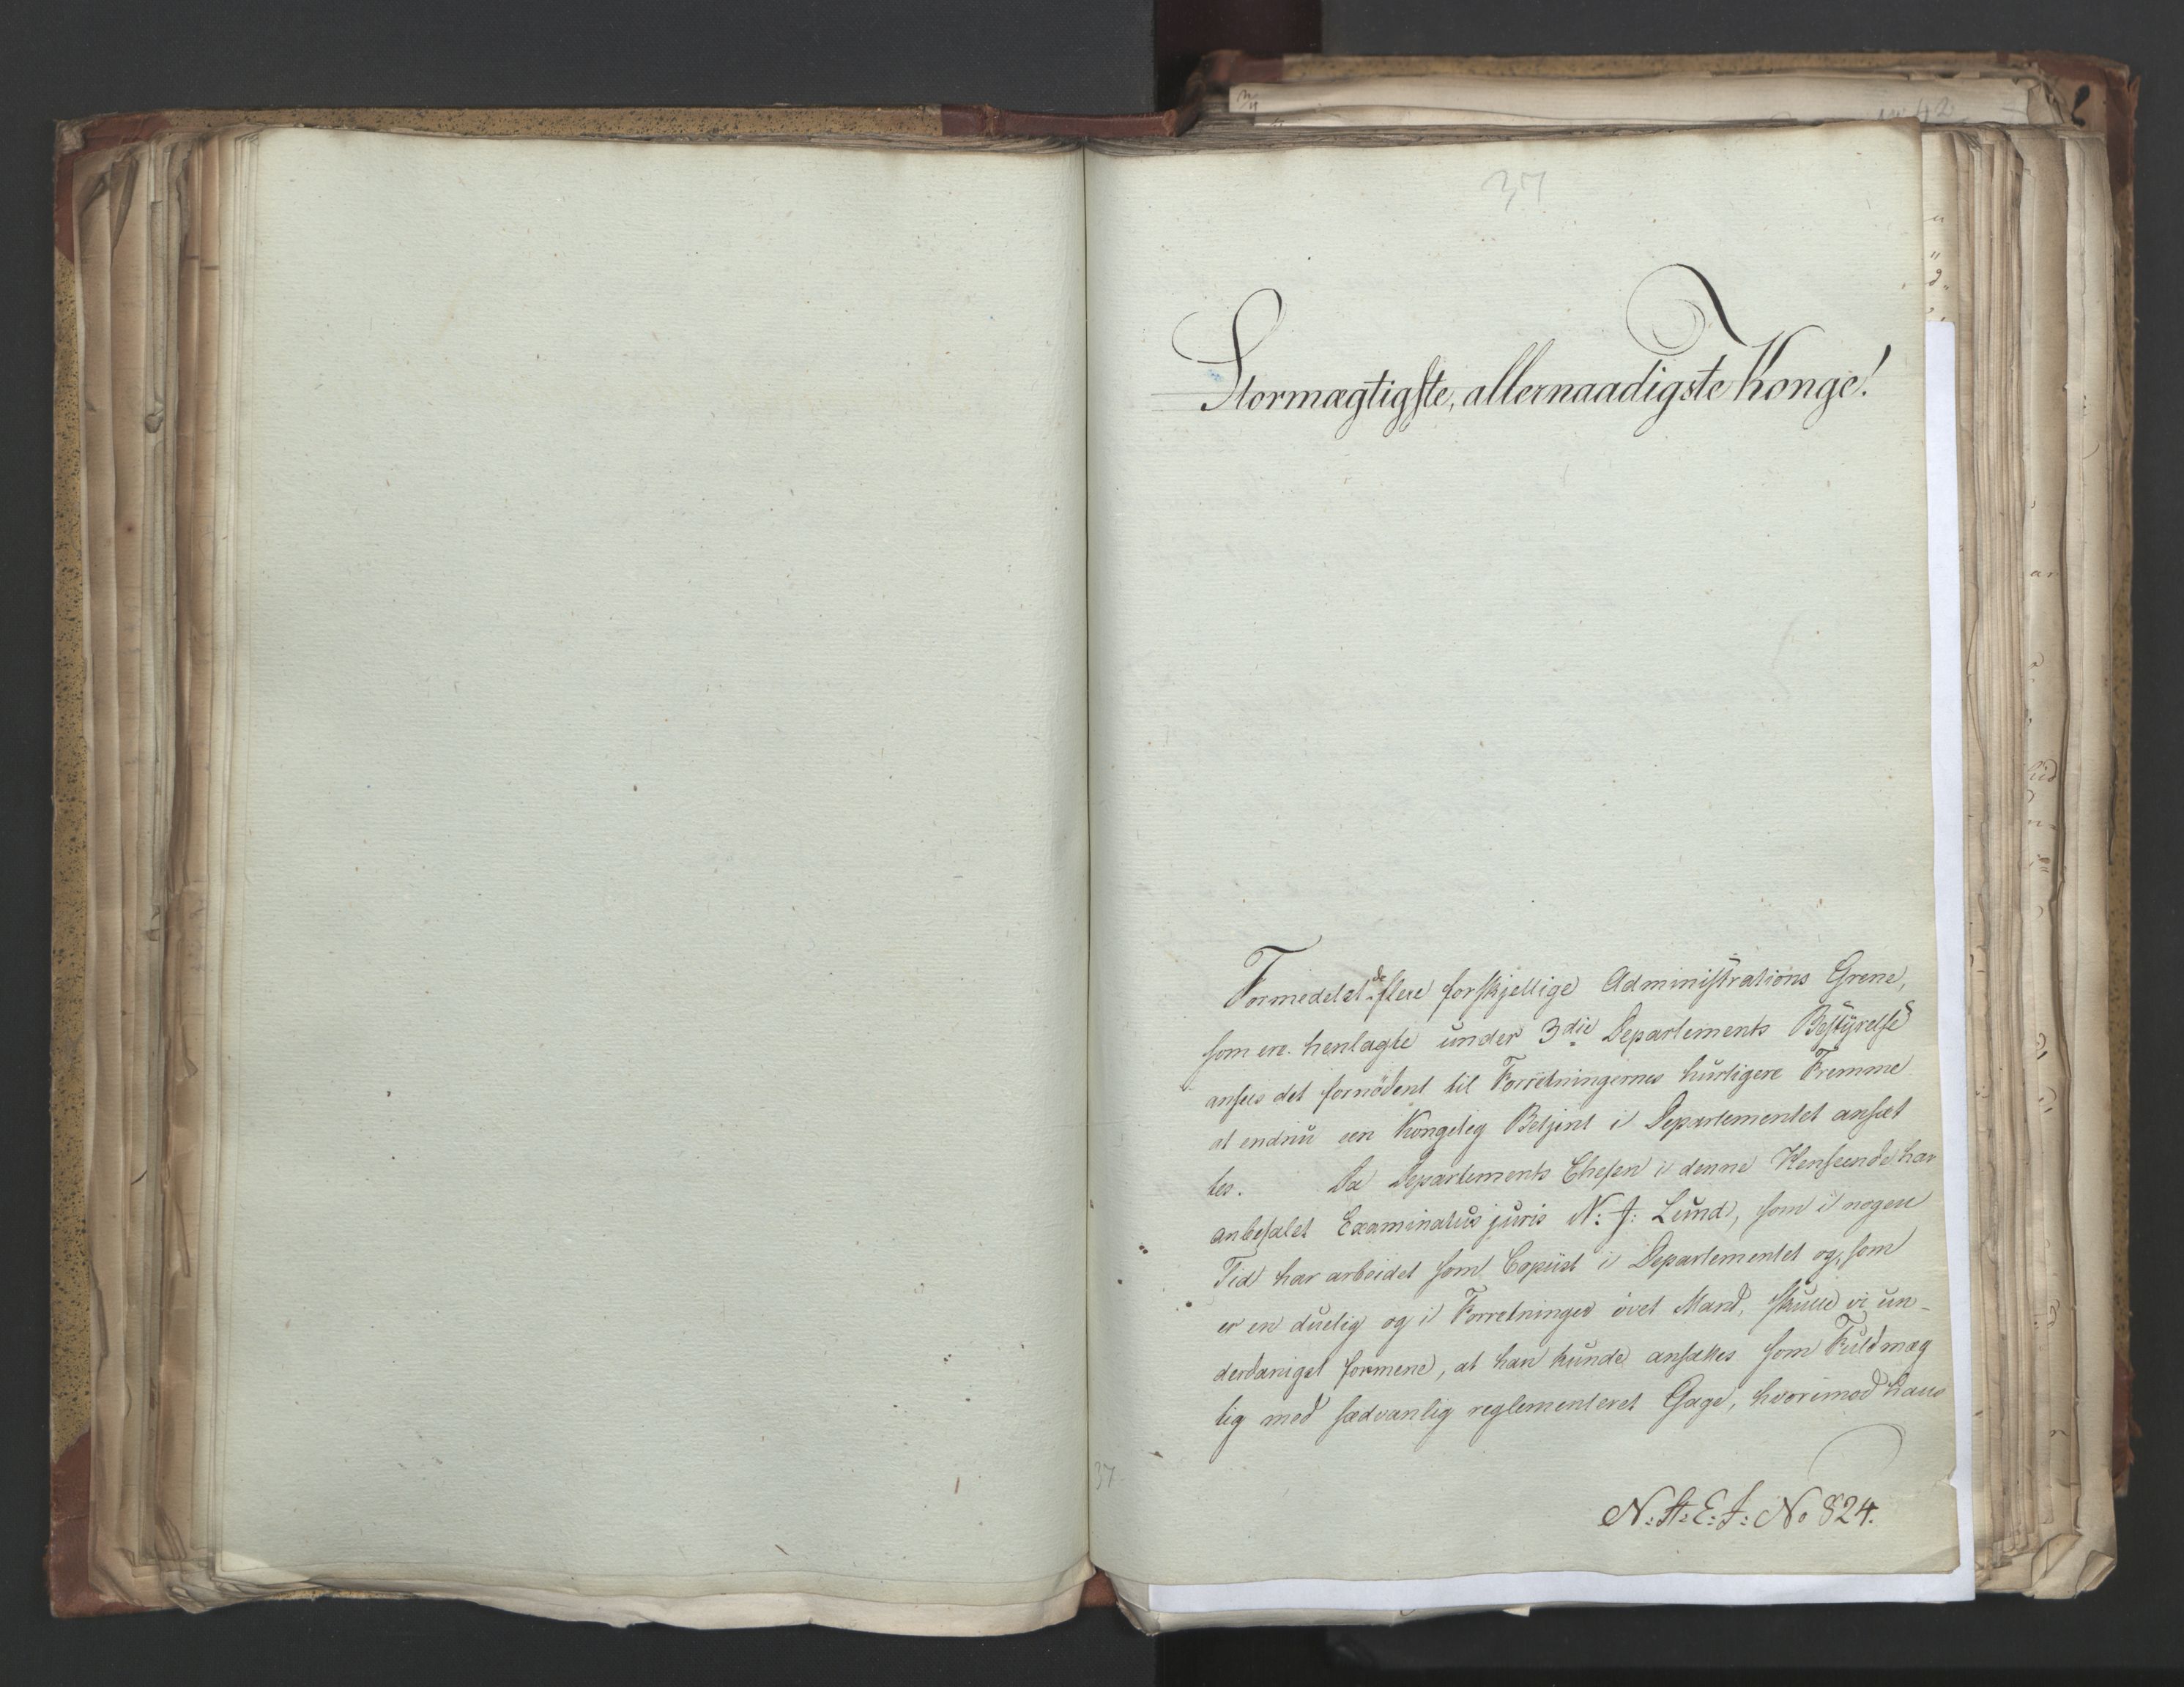 37
Stormægtigste, allernaadigste Konge!
Formedelst de flere forskjellige Administrations Grene,
som ere henlagte under 3die Departements Bestyrelse
ansees det fornödent til Forretningernes hurtigere Fremme
at endnu een Kongelig Betjent i Departementet ansæt
tes. Da Departements Chefen i denne Henseende har
anbefalet Examinatus juris N: J: Lund, som i nogen
Tid har arbeidet som Copiist i Departementet og, som
er en duelig og i Forretninger övet Mand, skulle vi un-
derdanigst formene, at han kunde ansættes som Fuldmæg
tig med sædvanlig reglementeret Gage, hvorimod hans
37
N: A: E: J: No 824.